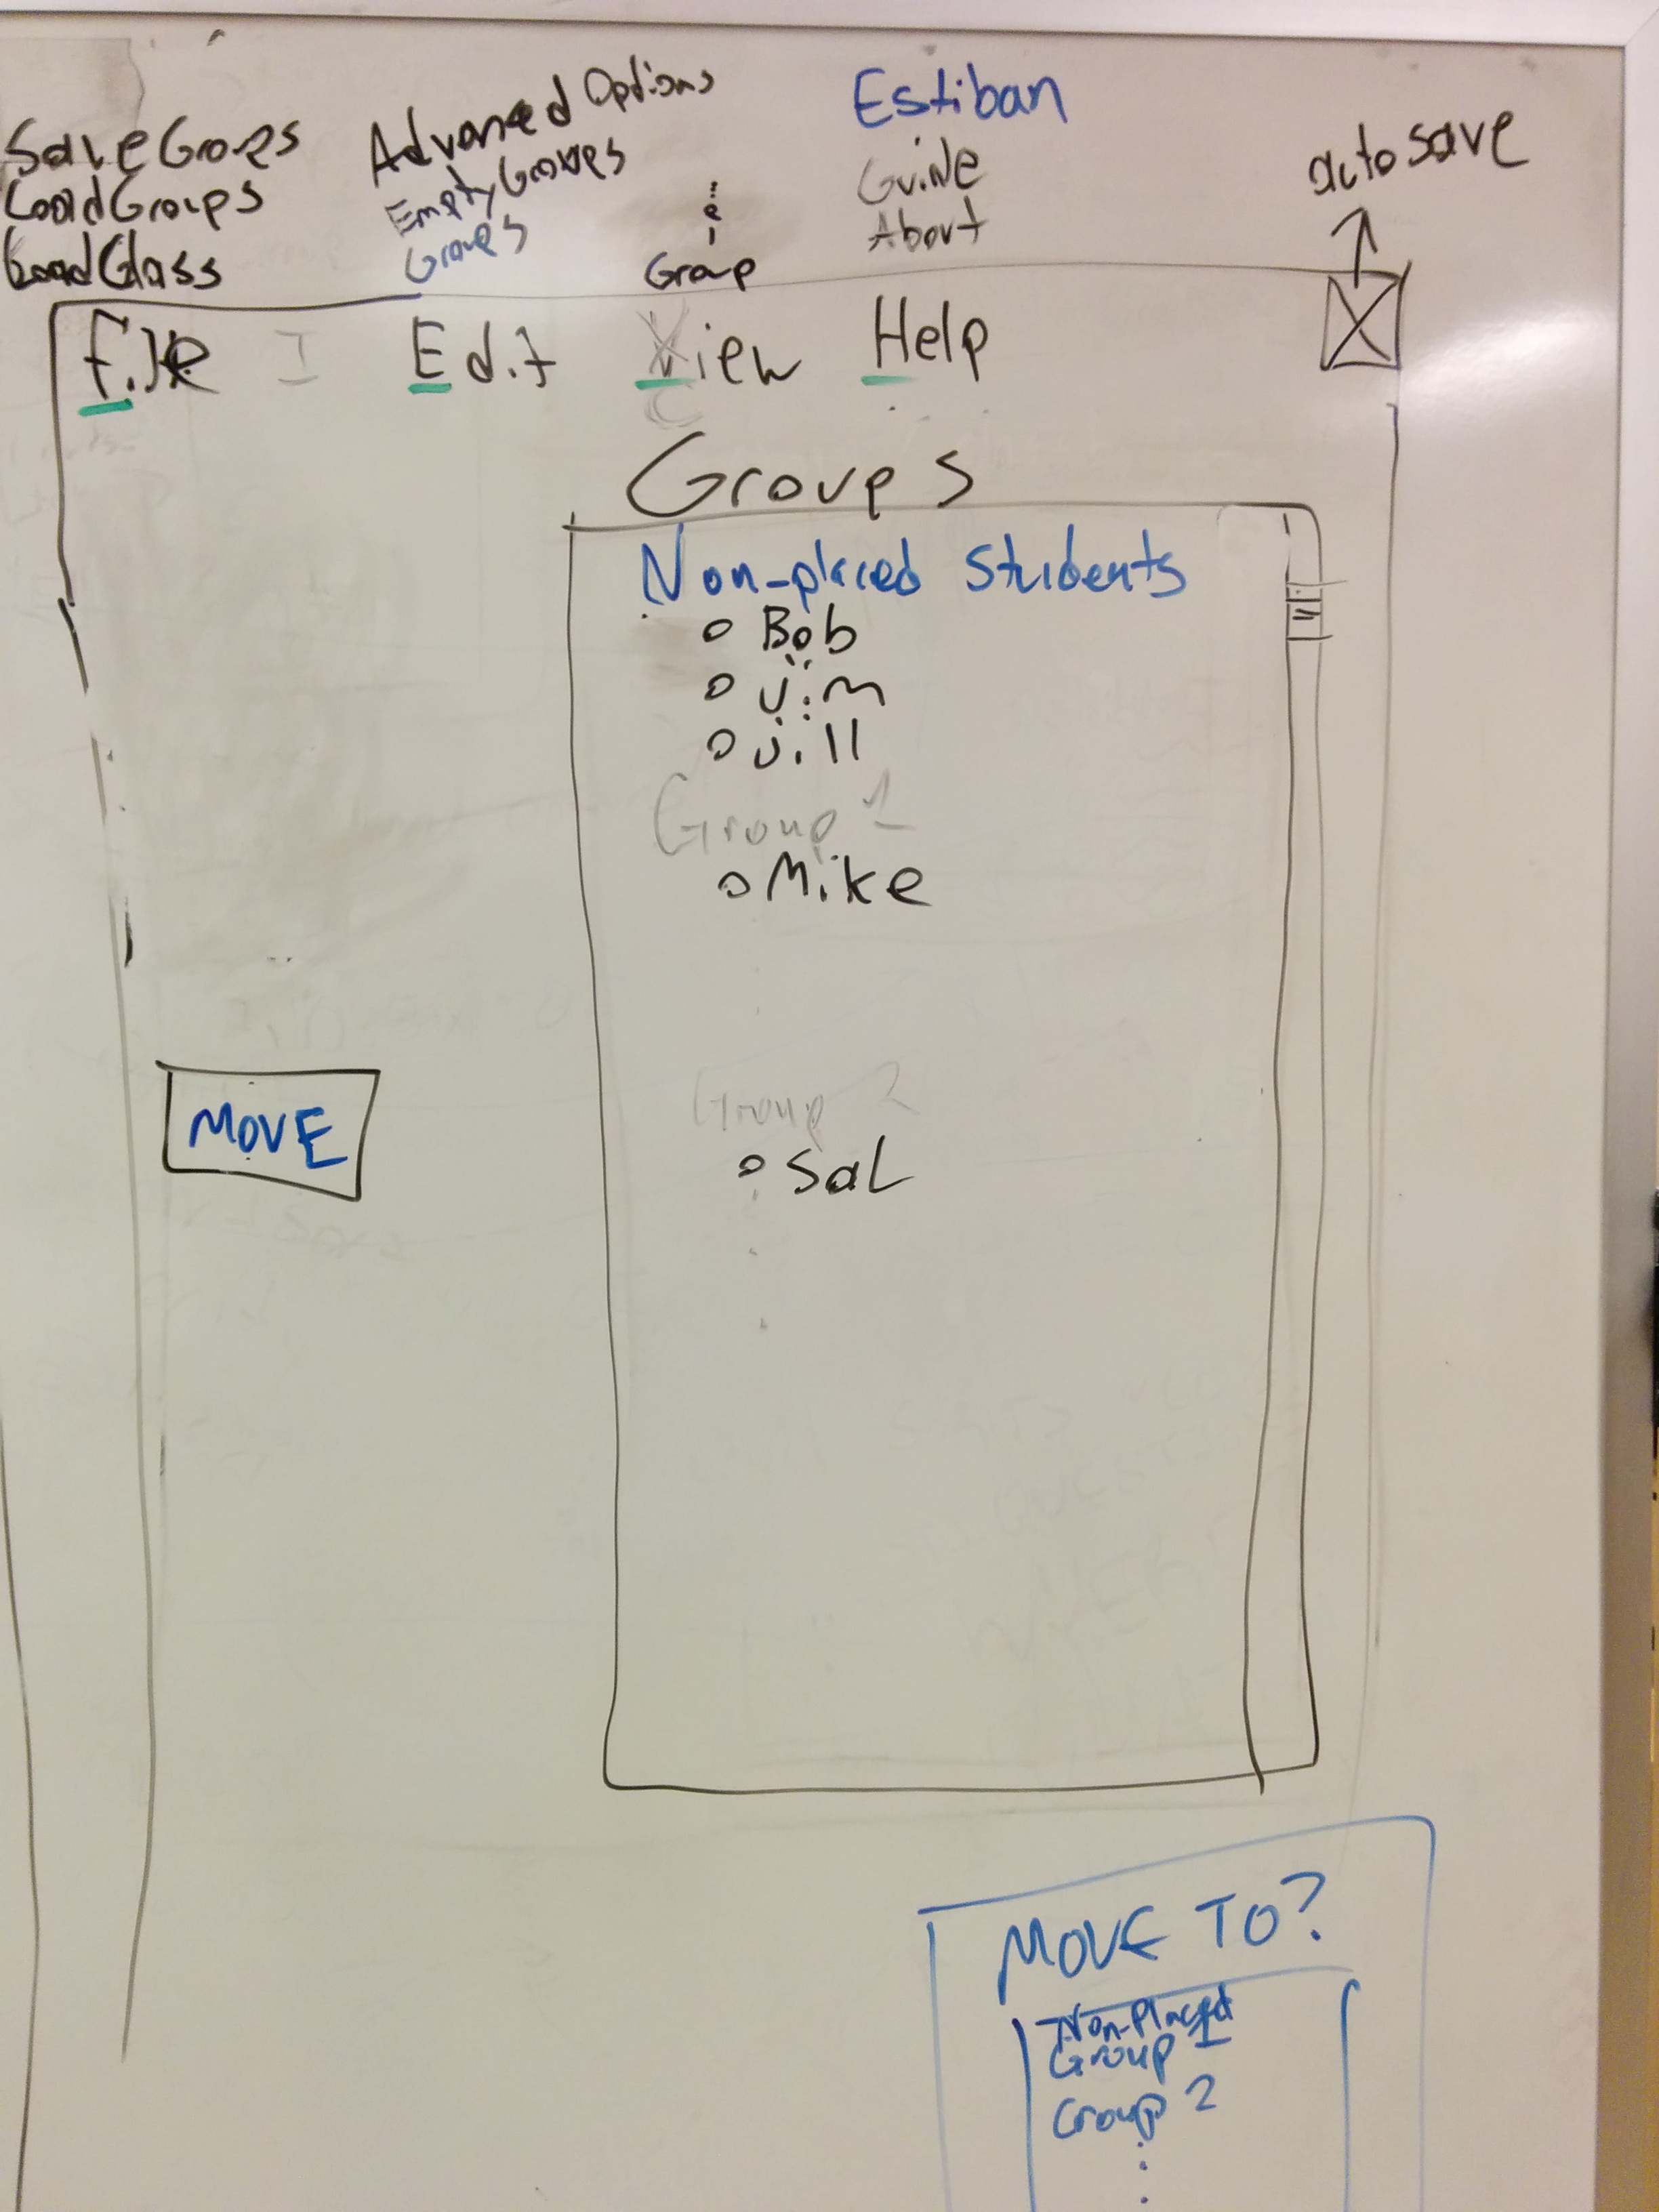 Save Groups
Load Groups
Load Class
Advanced Options
Empty Groups
Groups
Group
Estiban
Guide
About
auto save
File Edit View Help
X
Groups
Non-placed Students
Bob
Jim
Jill
Group 1
Mike
Group 2
Sal
MOVE
MOVE TO?
Non-Placed
Group 1
Group 2